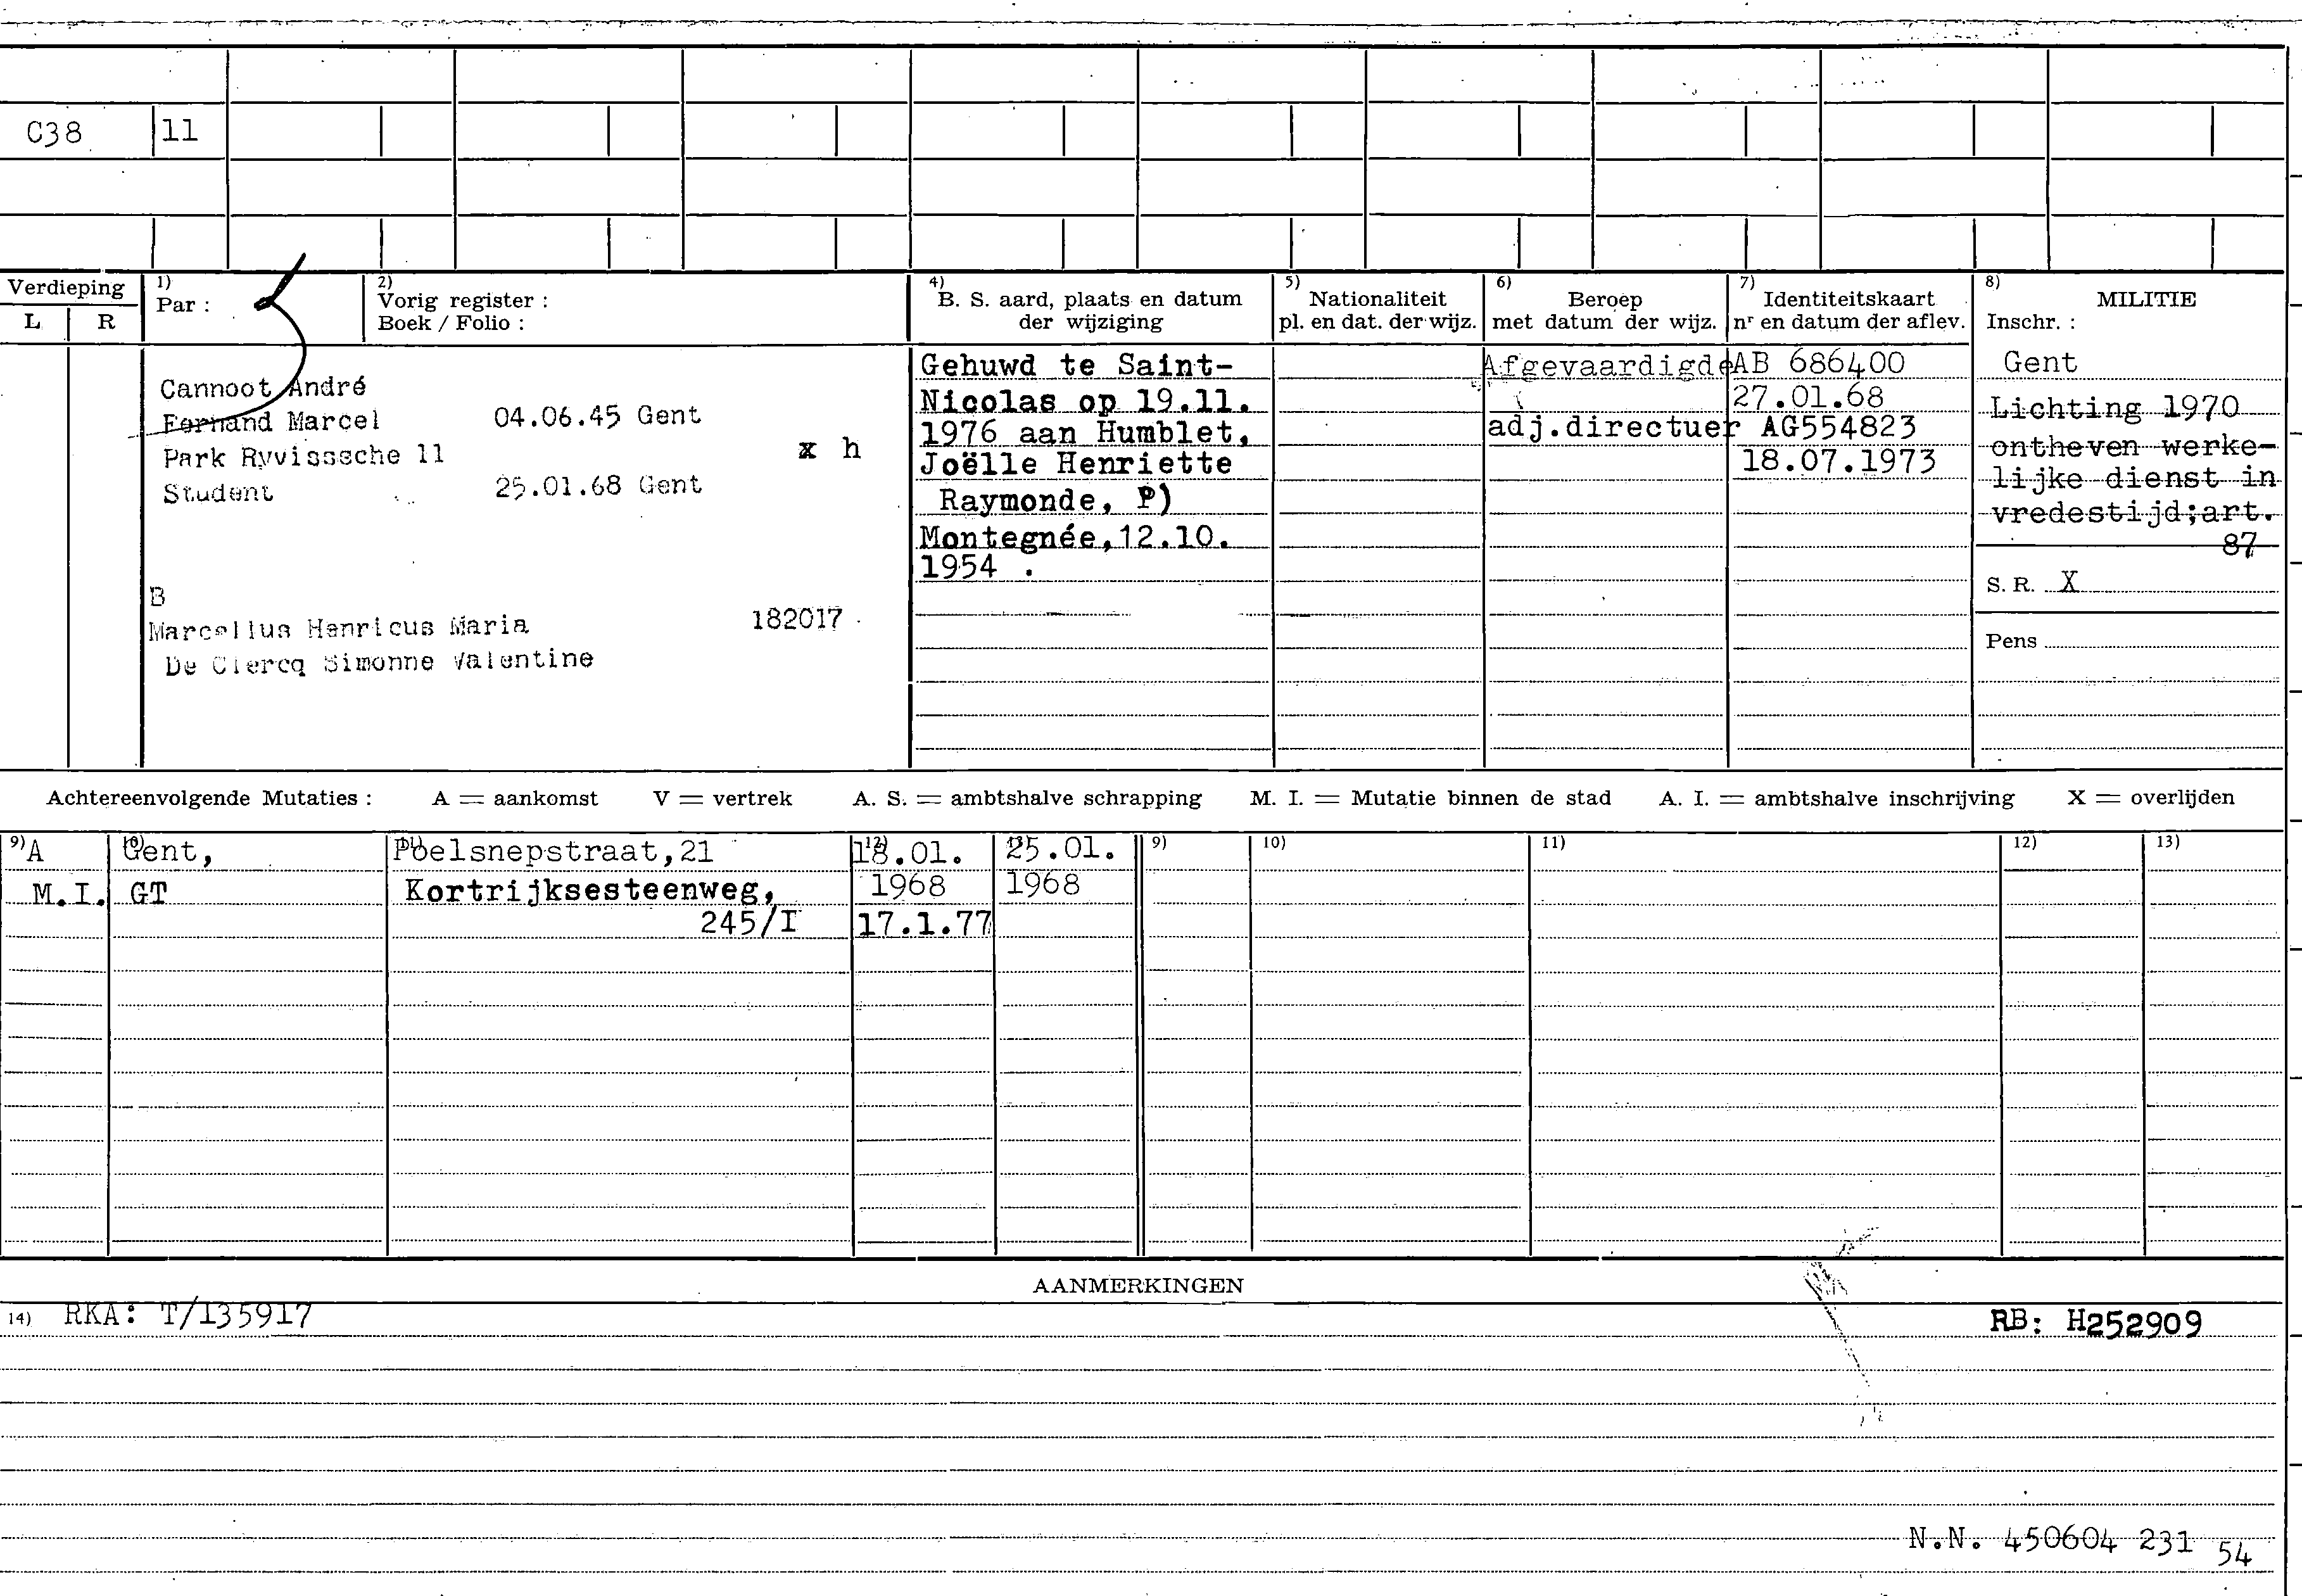 C38 11
Verdieping
L R
1)
Par :
2)
Vorig register :
Boek / Folio :
4)
B. S. aard, plaats en datum
der wijziging
5)
Nationaliteit
pl. en dat. der wijz.
6)
Beroep
met datum der wijz.
7)
Identiteitskaart
nr en datum der aflev.
8)
MILITIE
Inschr. :
Cannoot André
Fernand Marcel 04.06.45 Gent
Park Ryvisssche 11 x h
Student 25.01.68 Gent
B
Marcellus Henricus Maria 182017
De Clercq Simonne Valentine
Gehuwd te Saint-
Nicolas op 19.11.
1976 aan Humblet,
Joëlle Henriette
Raymonde, P)
Montegnée,12.10.
1954 .
Afgevaardigde
adj.directuer
AB 686400
27.01.68
AG554823
18.07.1973
Gent
Lichting 1970
ontheven werke-
lijke dienst in
vredestijd;art.
87
S. R. X
Pens
Achtereenvolgende Mutaties : A = aankomst V = vertrek A. S. = ambtshalve schrapping M. I. = Mutatie binnen de stad A. I. = ambtshalve inschrijving X = overlijden
9) 10) 11) 12) 13) 9) 10) 11) 12) 13)
A Gent, Poelsnepstraat,21 18.01. 25.01.
M.I. GT Kortrijksesteenweg, 1968 1968
245/I 17.1.77
AANMERKINGEN
14) RKA: T/135917 RB: H252909
N.N. 450604 231 54